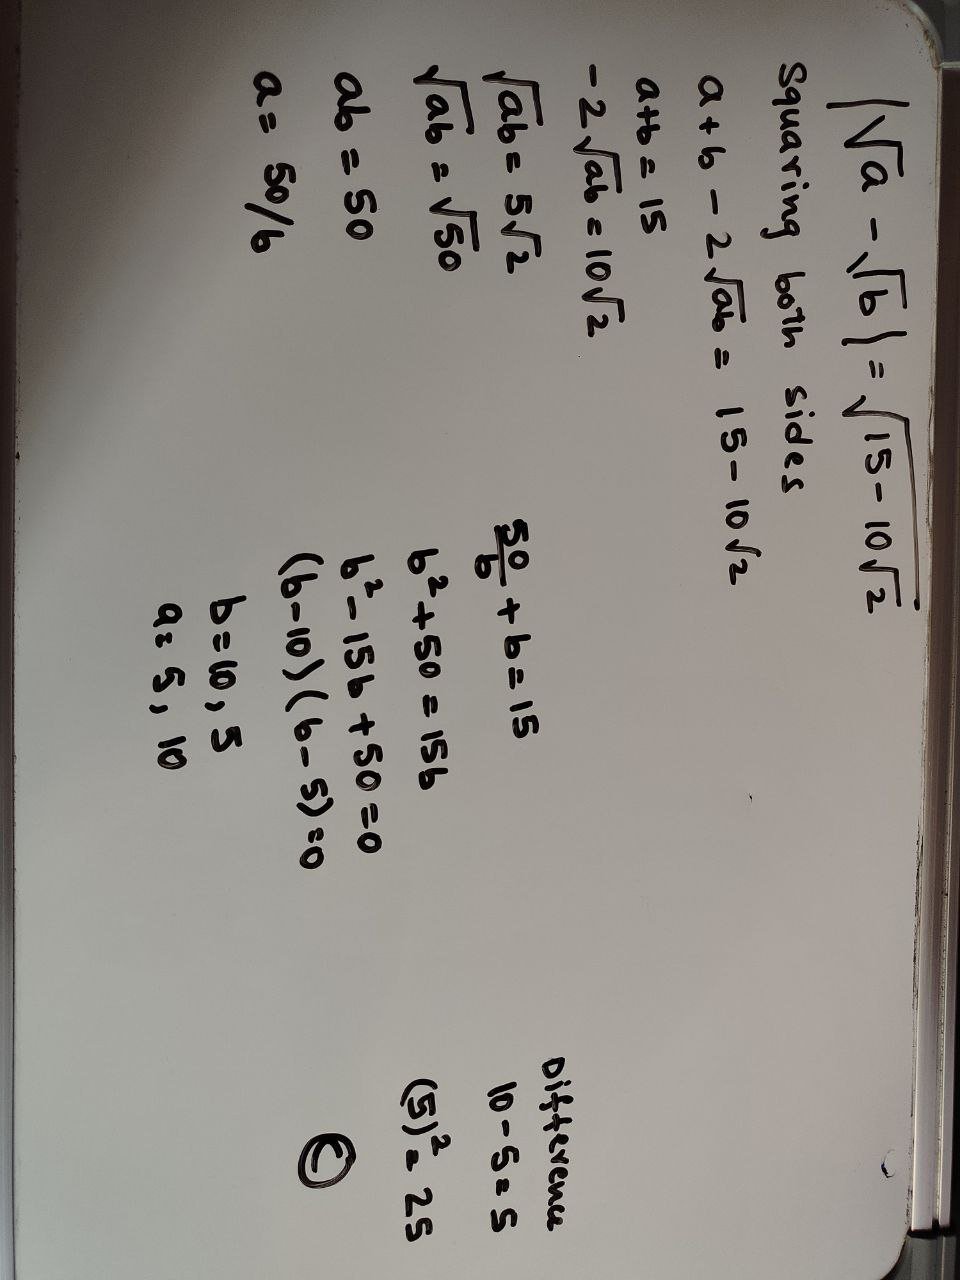 |√a - √b| = √15 - 10√2
Squaring both sides
a + b - 2√ab = 15 - 10√2
a+b = 15
- 2√ab = 10√2
√ab = 5√2
√ab = √50
ab = 50
a = 50/b
50/b + b = 15
b² + 50 = 15b
b² - 15b + 50 = 0
(b-10)(b-5) = 0
b = 10, 5
a = 5, 10
Difference
10 - 5 = 5
(5)² = 25